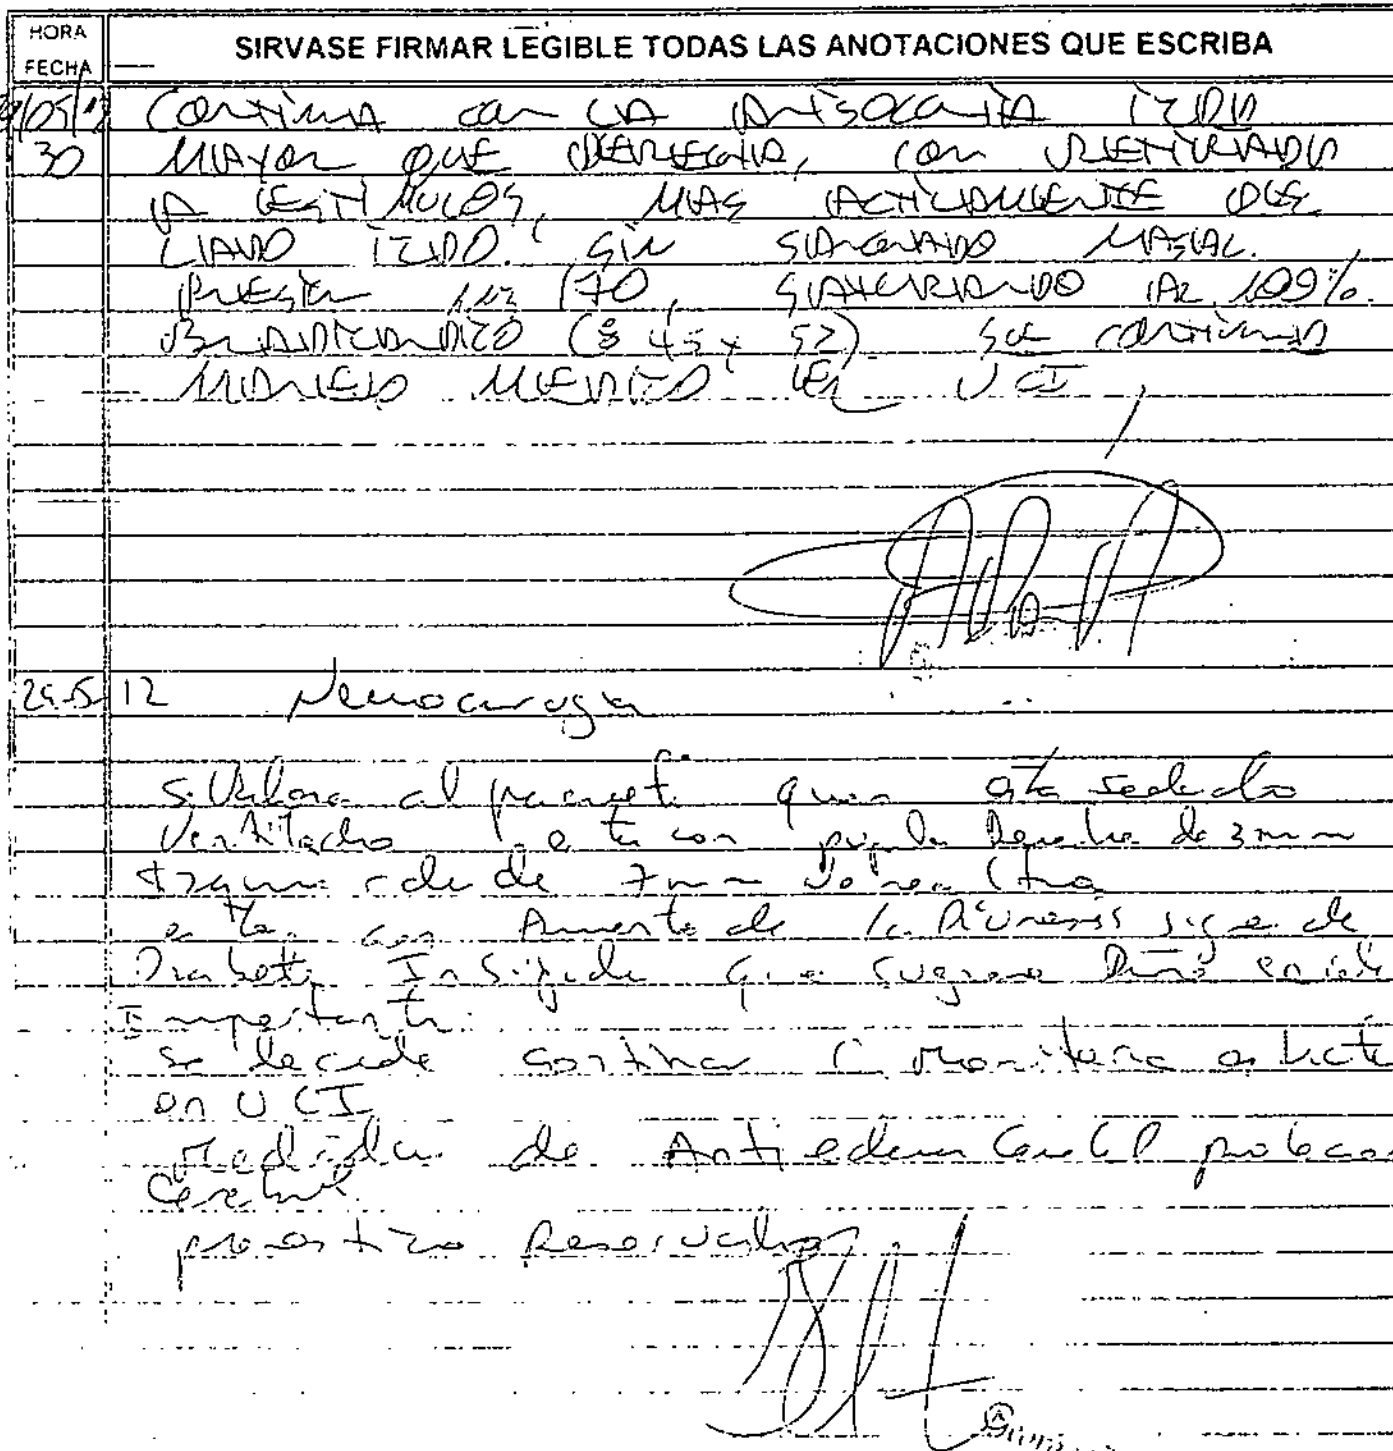 HORA
FECHA
SIRVASE FIRMAR LEGIBLE TODAS LAS ANOTACIONES QUE ESCRIBA
/05/12 Continua con la anisocoria izda
30 mayor que derecha, con retirada
a estimulos, mas activamente
lado izdo. Sin sangrado nasal.
Presión 112/70, saturando al 100%.
Bradicardico (45 x 52). Se continua
manejo medico en UCI
29-5-12 Neurocirugia
se Valora al paciente quien esta sedado
Ventilado esta con pupila Derecha de 3 mm
de 7 mm No reactiva
esta con Aumento de la Diuresis sigue de
Diabetes Insipida que sugiere Daño
Importante.
Se decide continuar monitoreo
en UCI
Medidas de Antiedema Cerebral
Cerebral.
pronostico Reservado